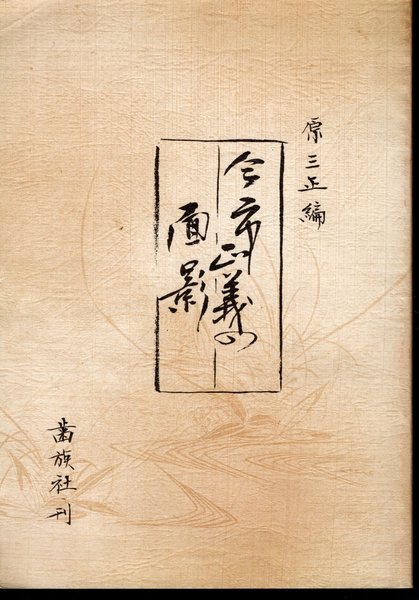 原三正編
今市正義の
面影
歯族社刊